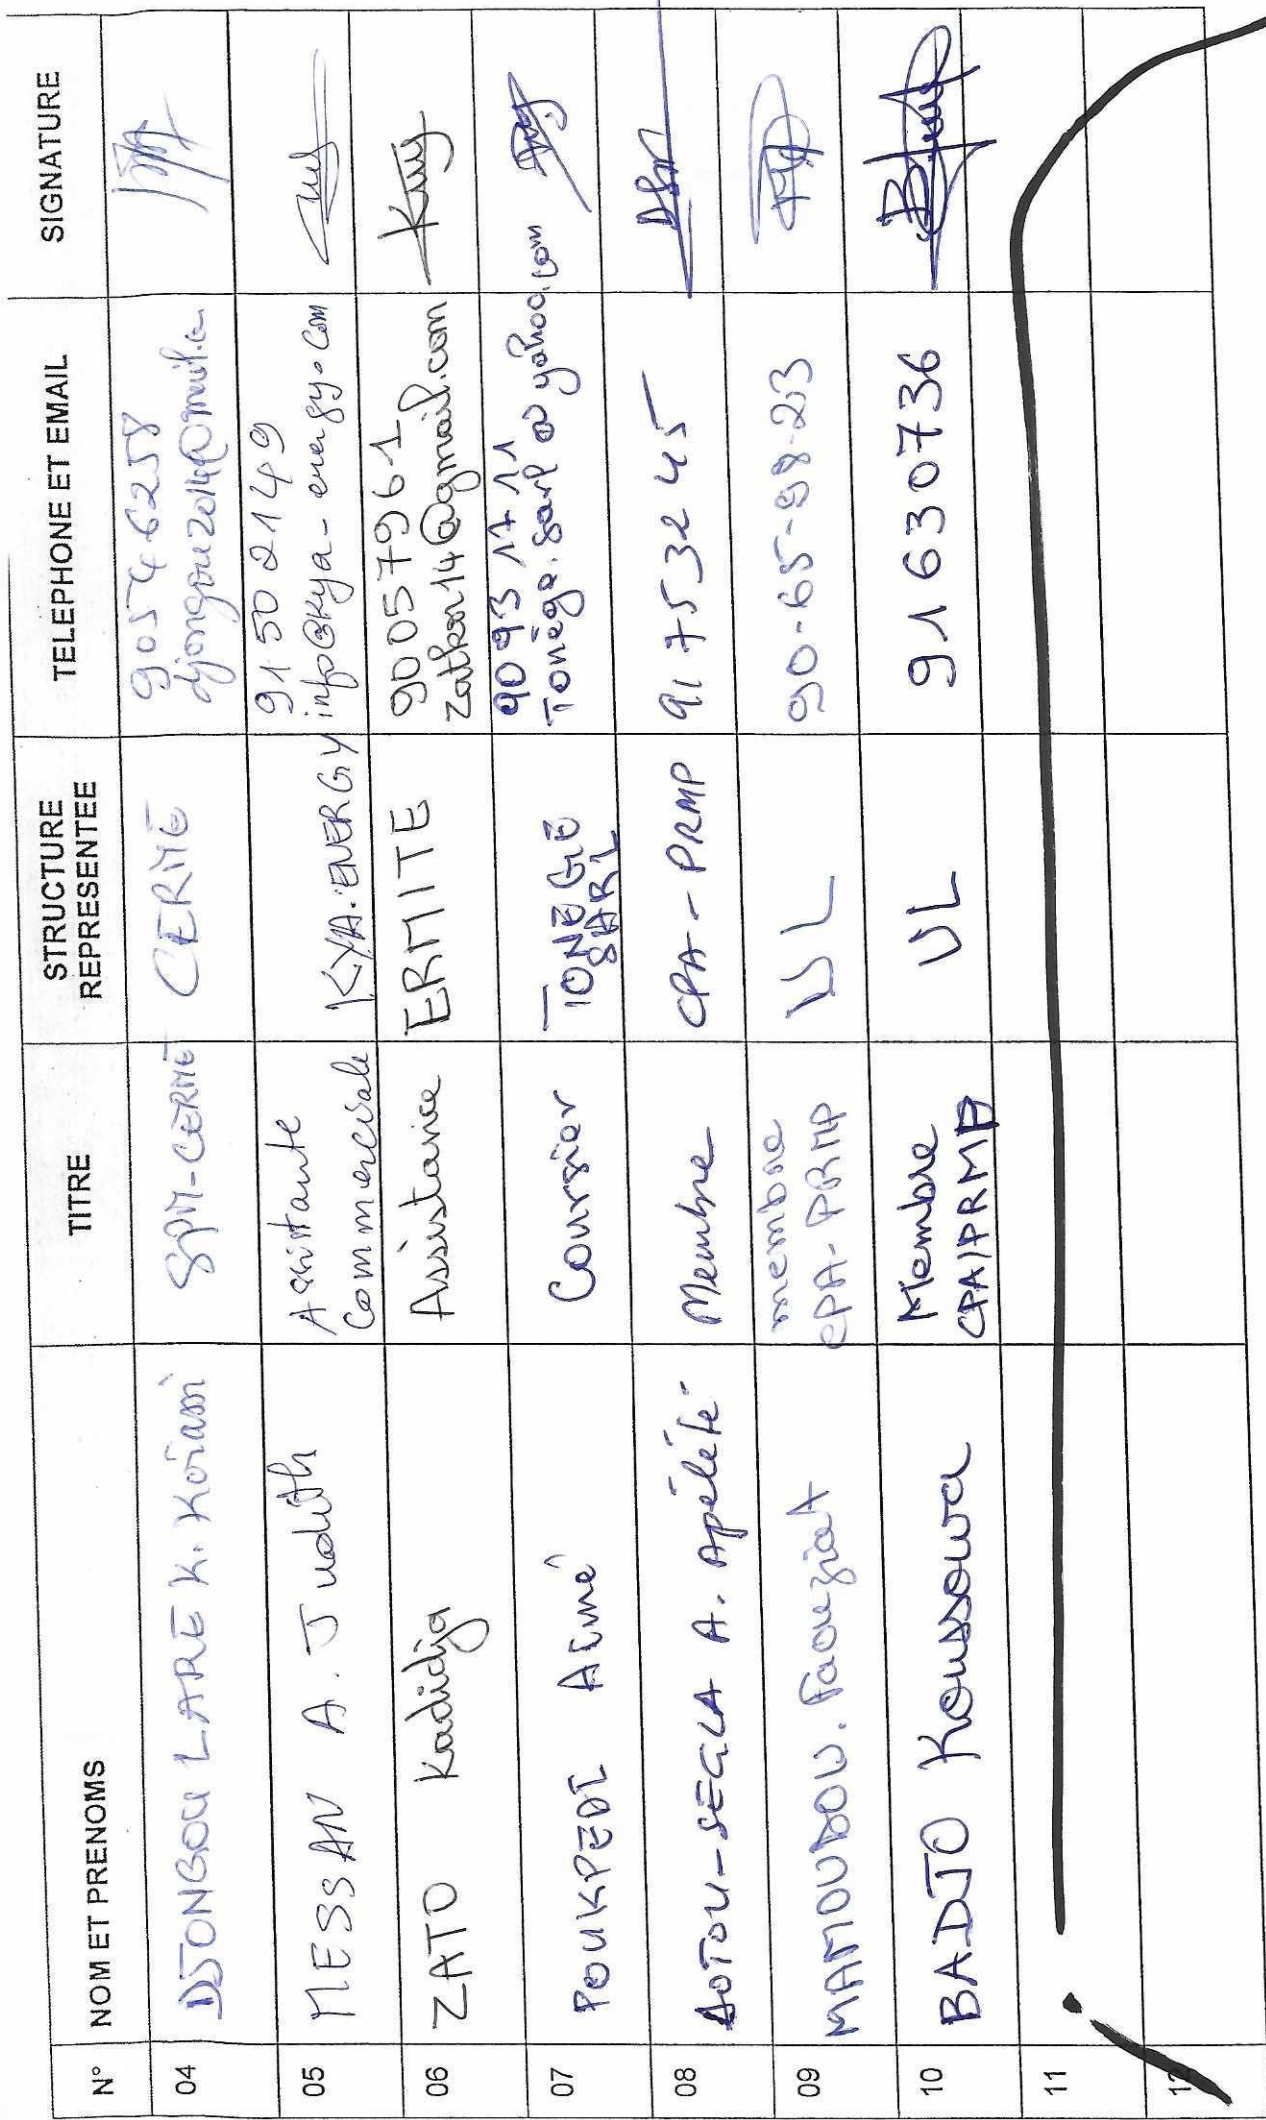 N° NOM ET PRENOMS TITRE STRUCTURE REPRESENTEE TELEPHONE ET EMAIL SIGNATURE
04 DJONGOU LARE K. SPM-CERME CERME 90546258
05 MESSAN A. Judith Assistante Commerciale KYA-ENERGY 91502149
info@kya-energy.com
06 ZATO Kadidja Assistance ERMITE 90057961
zatkon14@gmail.com
07 POUKPEDI Aimé Coursier TONEGE SARL 90931711
Tonège.sarl@yahoo.com
08 AOTOU-SEGLA A. Apélété Membre CPA-PRMP 91753245
09 MAMOUDOU. Faouziat membre CPA-PRMP UL 90-65-98-23
10 BADJO Koussowa Membre CPA/PRMP UL 91630736
11
12